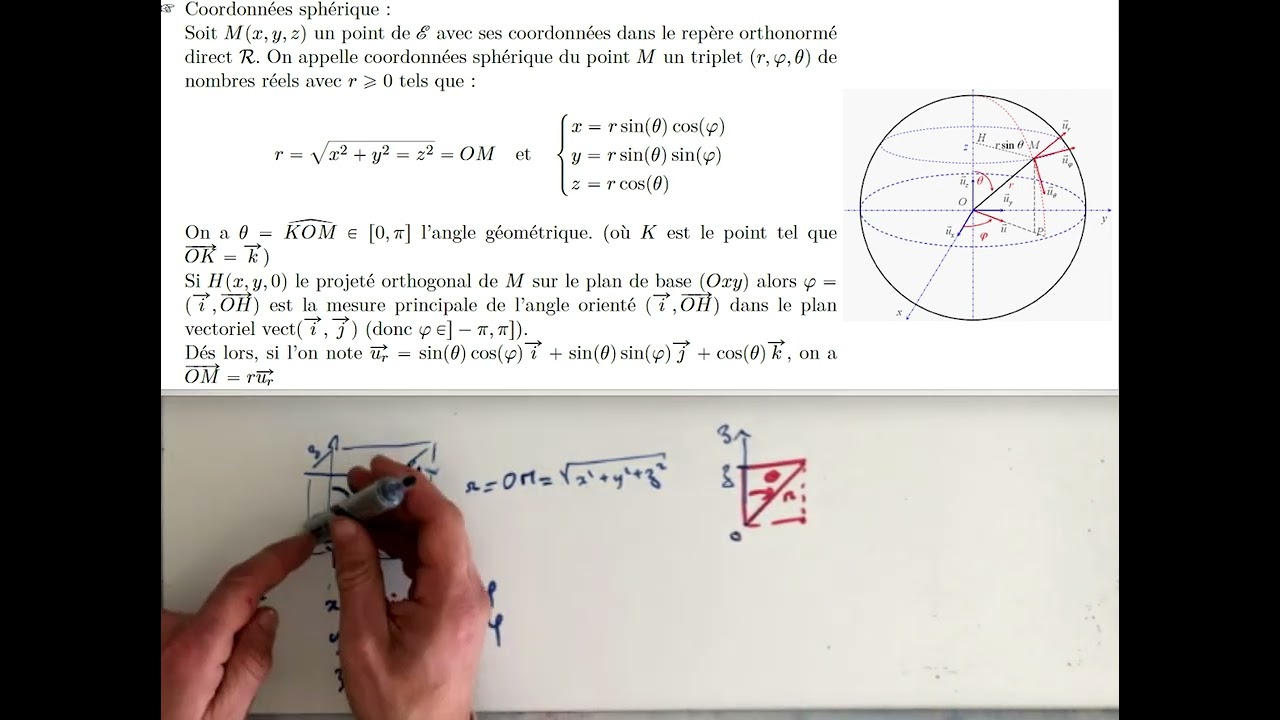 ☞ Coordonnées sphérique :
Soit M(x, y, z) un point de ℰ avec ses coordonnées dans le repère orthonormé
direct ℛ. On appelle coordonnées sphérique du point M un triplet (r, φ, θ) de
nombres réels avec r ⩾ 0 tels que :
x = r sin(θ) cos(φ)
r = √(x² + y² = z²) = OM et { y = r sin(θ) sin(φ)
z = r cos(θ)
On a θ = \widehat{KOM} ∈ [0, π] l'angle géométrique. (où K est le point tel que
\overrightarrow{OK} = \overrightarrow{k})
Si H(x, y, 0) le projeté orthogonal de M sur le plan de base (Oxy) alors φ =
(\overrightarrow{i}, \overrightarrow{OH}) est la mesure principale de l'angle orienté (\overrightarrow{i}, \overrightarrow{OH}) dans le plan
vectoriel vect(\overrightarrow{i}, \overrightarrow{j}) (donc φ ∈] − π, π]).
Dés lors, si l'on note \overrightarrow{u_r} = sin(θ) cos(φ)\overrightarrow{i} + sin(θ) sin(φ)\overrightarrow{j} + cos(θ)\overrightarrow{k}, on a
\overrightarrow{OM} = r\overrightarrow{u_r}
H
r sin θ M
z
θ
r
O
y
φ
P
x
r = OM = √(x² + y² + z²)
z
z
θ
r
O
φ
φ